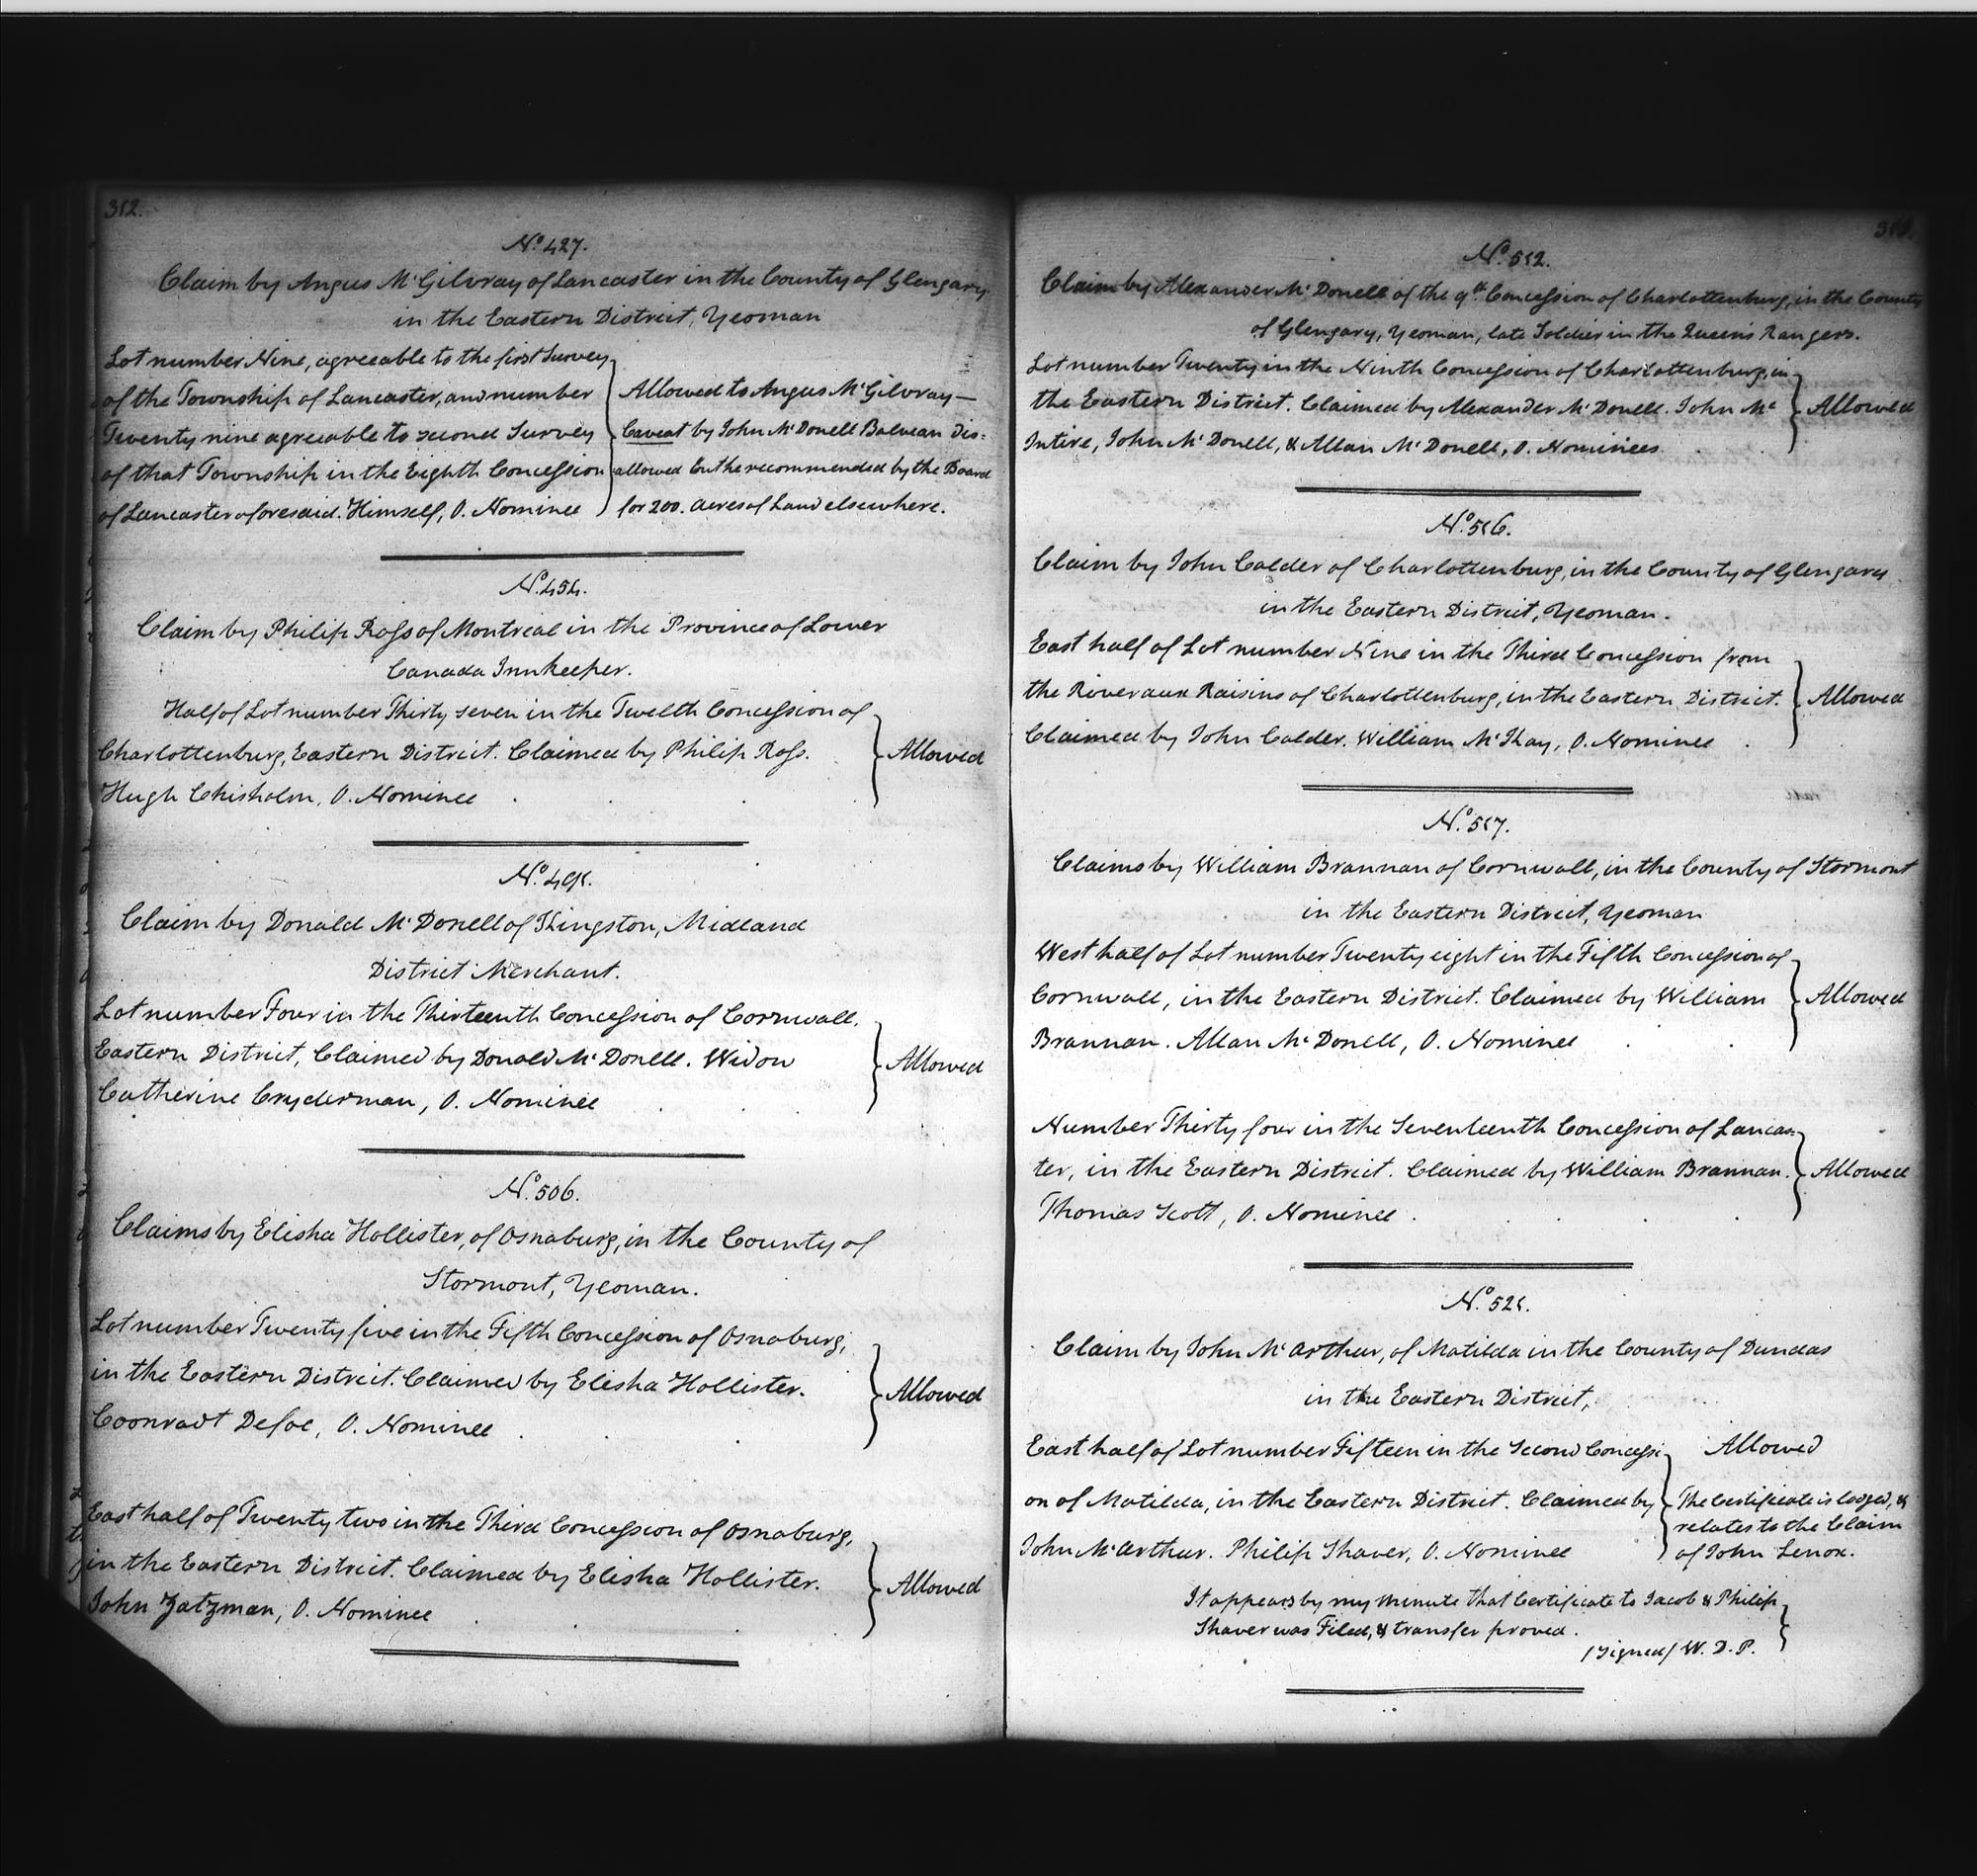 312.
No. 427.
Claim by Angus McGilvray of Lancaster in the County of Glengary
in the Eastern District, Yeoman
Lot number Nine, agreeable to the first Survey
of the Township of Lancaster, and number
Twenty nine agreeable to second Survey
of that Township in the Eighth Concession
of Lancaster aforesaid. Himself, O. Nominee
Allowed to Angus McGilvray—
Caveat by John McDonell Balnean dis=
allowed but he recommended by the Board
for 200. acres of Land elsewhere.
No. 454.
Claim by Philip Ross of Montreal in the Province of Lower
Canada Innkeeper.
Half of Lot number Thirty seven in the Twelth Concession of
Charlottenburg, Eastern District. Claimed by Philip Ross.
Hugh Chisholm, O. Nominee
Allowed
No. 491.
Claim by Donald McDonell of Kingston, Midland
District Merchant.
Lot number Four in the Thirteenth Concession of Cornwall.
Eastern District, Claimed by Donald McDonell. Widow
Catherine Cryderman, O. Nominee
Allowed
No. 506.
Claims by Elisha Hollister, of Osnaburg, in the County of
Stormont, Yeoman.
Lot number Twenty five in the Fifth Concession of Osnaburg,
in the Eastern District. Claimed by Elisha Hollister.
Coonradt Defoe, O. Nominee
Allowed
East half of Twenty two in the Third Concession of Osnaburg,
in the Eastern District. Claimed by Elisha Hollister.
John Zatzman, O. Nominee
Allowed
No. 512.
Claim by Alexander McDonell of the 9th Concession of Charlottenburg, in the County
of Glengary, Yeoman, late Soldier in the Queen's Rangers.
Lot number Twenty in the Ninth Concession of Charlottenburg, in
the Eastern District. Claimed by Alexander McDonell. John Mc
Intire, John McDonell, & Allan McDonell, O. Nominees
Allowed
No. 516.
Claim by John Calder of Charlottenburg, in the County of Glengary
in the Eastern District, Yeoman.
East half of Lot number Nine in the Third Concession from
the River aux Raisins of Charlottenburg, in the Eastern District.
Claimed by John Calder. William McKay, O. Nominee
Allowed
No. 517.
Claims by William Brannan of Cornwall, in the County of Stormont
in the Eastern District, Yeoman
West half of Lot number Twenty eight in the Fifth Concession of
Cornwall, in the Eastern District. Claimed by William
Brannan. Allan McDonell, O. Nominee
Allowed
Number Thirty four in the Seventeenth Concession of Lancas=
ter, in the Eastern District. Claimed by William Brannan.
Thomas Scott, O. Nominee
Allowed
No. 521.
Claim by John McArthur, of Matilda in the County of Dundas
in the Eastern District,
East half of Lot number Fifteen in the Second Concessi=
on of Matilda, in the Eastern District. Claimed by
John McArthur. Philip Shaver, O. Nominee
Allowed
The Certificate is lodged, &
relates to the Claim
of John Lenox.
It appears by my minute that Certificate to Jacob & Philip
Shaver was Filed, & transfer proved.
/Signed/ W. D. P.